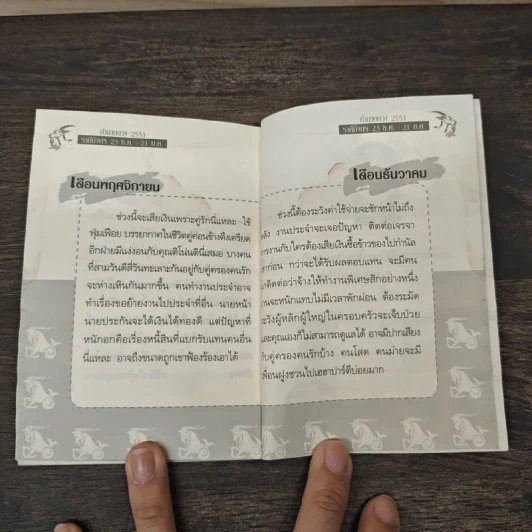 ทำนายดวง 2551
ราศีมังกร 23 ธ.ค. - 21 ม.ค.
เดือนพฤศจิกายน
ช่วงนี้จะเสียเงินเพราะคู่รักนี่แหละ ใช้
ฟุ่มเฟือย บรรยากาศในชีวิตคู่ค่อนข้างตึงเครียด
อีกฝ่ายมีแง่งอนกับคุณดีโน่นดีนี่เสมอ บางคน
ที่สามวันดีสี่วันทะเลาะกันอยู่กับคู่ครองคนรัก
จะห่างเหินกันมากขึ้น คนทำงานประจำอาจ
ทำเรื่องขอย้ายงานไปประจำที่อื่น นายหน้า
นายประกันจะได้เงินได้ทองดี แต่ปัญหาที่
หนักอกคือเรื่องหนี้สินที่แบกรับแทนคนอื่น
นี่แหละ อาจถึงขนาดถูกเขาฟ้องร้องเอาได้
ทำนายดวง 2551
ราศีมังกร 23 ธ.ค. - 21 ม.ค.
เดือนธันวาคม
ช่วงนี้ต้องระวังค่าใช้จ่ายจะชักหน้าไม่ถึง
หลัง งานประจำจะเจอปัญหา ติดต่อเจรจา
การงานกับใครต้องเสียเงินซื้อข้าวของไปกำนัล
เขาก่อน กว่าจะได้รับผลตอบแทน จะมีคน
มาติดต่อว่าจ้างให้ทำงานพิเศษสักอย่างหนึ่ง
งานจะหนักแทบไม่มีเวลาพักผ่อน ต้องระมัด
ระวังผู้หลักผู้ใหญ่ในครอบครัวจะเจ็บป่วย
และคุณเองก็ไม่สามารถดูแลได้ อาจมีปากเสียง
กับคู่ครองคนรักบ้าง คนโสด คนม่ายจะมี
เพื่อนฝูงชวนไปเฮฮาปาร์ตี้บ่อยมาก